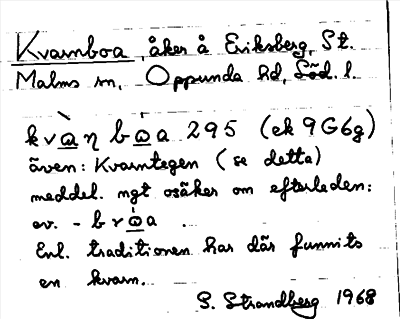 Kvarnboa, åker å Eriksberg, St.
Malms sn, Oppunda hd, Söd. l.
kvaŋ bωa 295 (ek 9G6g)
även: Kvarntegen (se detta)
meddel. ngt osäker om efterleden:
ev. - brωa .
Enl. traditionen har där funnits
en kvarn.
S. Strandberg 1968